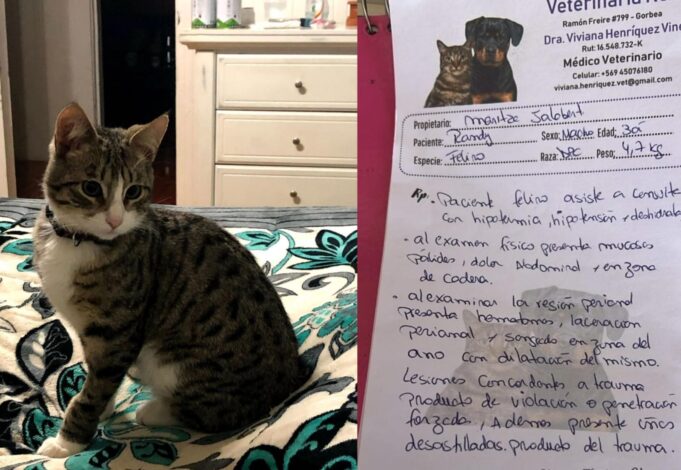 Veterinaria
Ramón Freire #799 - Gorbea
Dra. Viviana Henríquez Vine
Rut: 16.548.732-K
Médico Veterinario
Celular: +569 45076180
viviana.henriquez.vet@gmail.com
Propietario: Maritza Jalabert
Paciente: Randy Sexo: Macho Edad: 3a
Especie: Felino Raza: DPC Peso: 4,7 kg
Rp. Paciente felino asiste a consulta
con hipotermia, hipotensión + deshidrata
• al examen físico presenta mucosas
pálidas, dolor Abdominal + en zona
de cadera.
• al examinar la región perianal
presenta hematomas, laceración
perianal + sangrado en zona del
ano con dilatación del mismo.
Lesiones concordantes a trauma
producto de violación o penetración
forzada, Ademas presenta uñas
desastilladas producto del trauma.